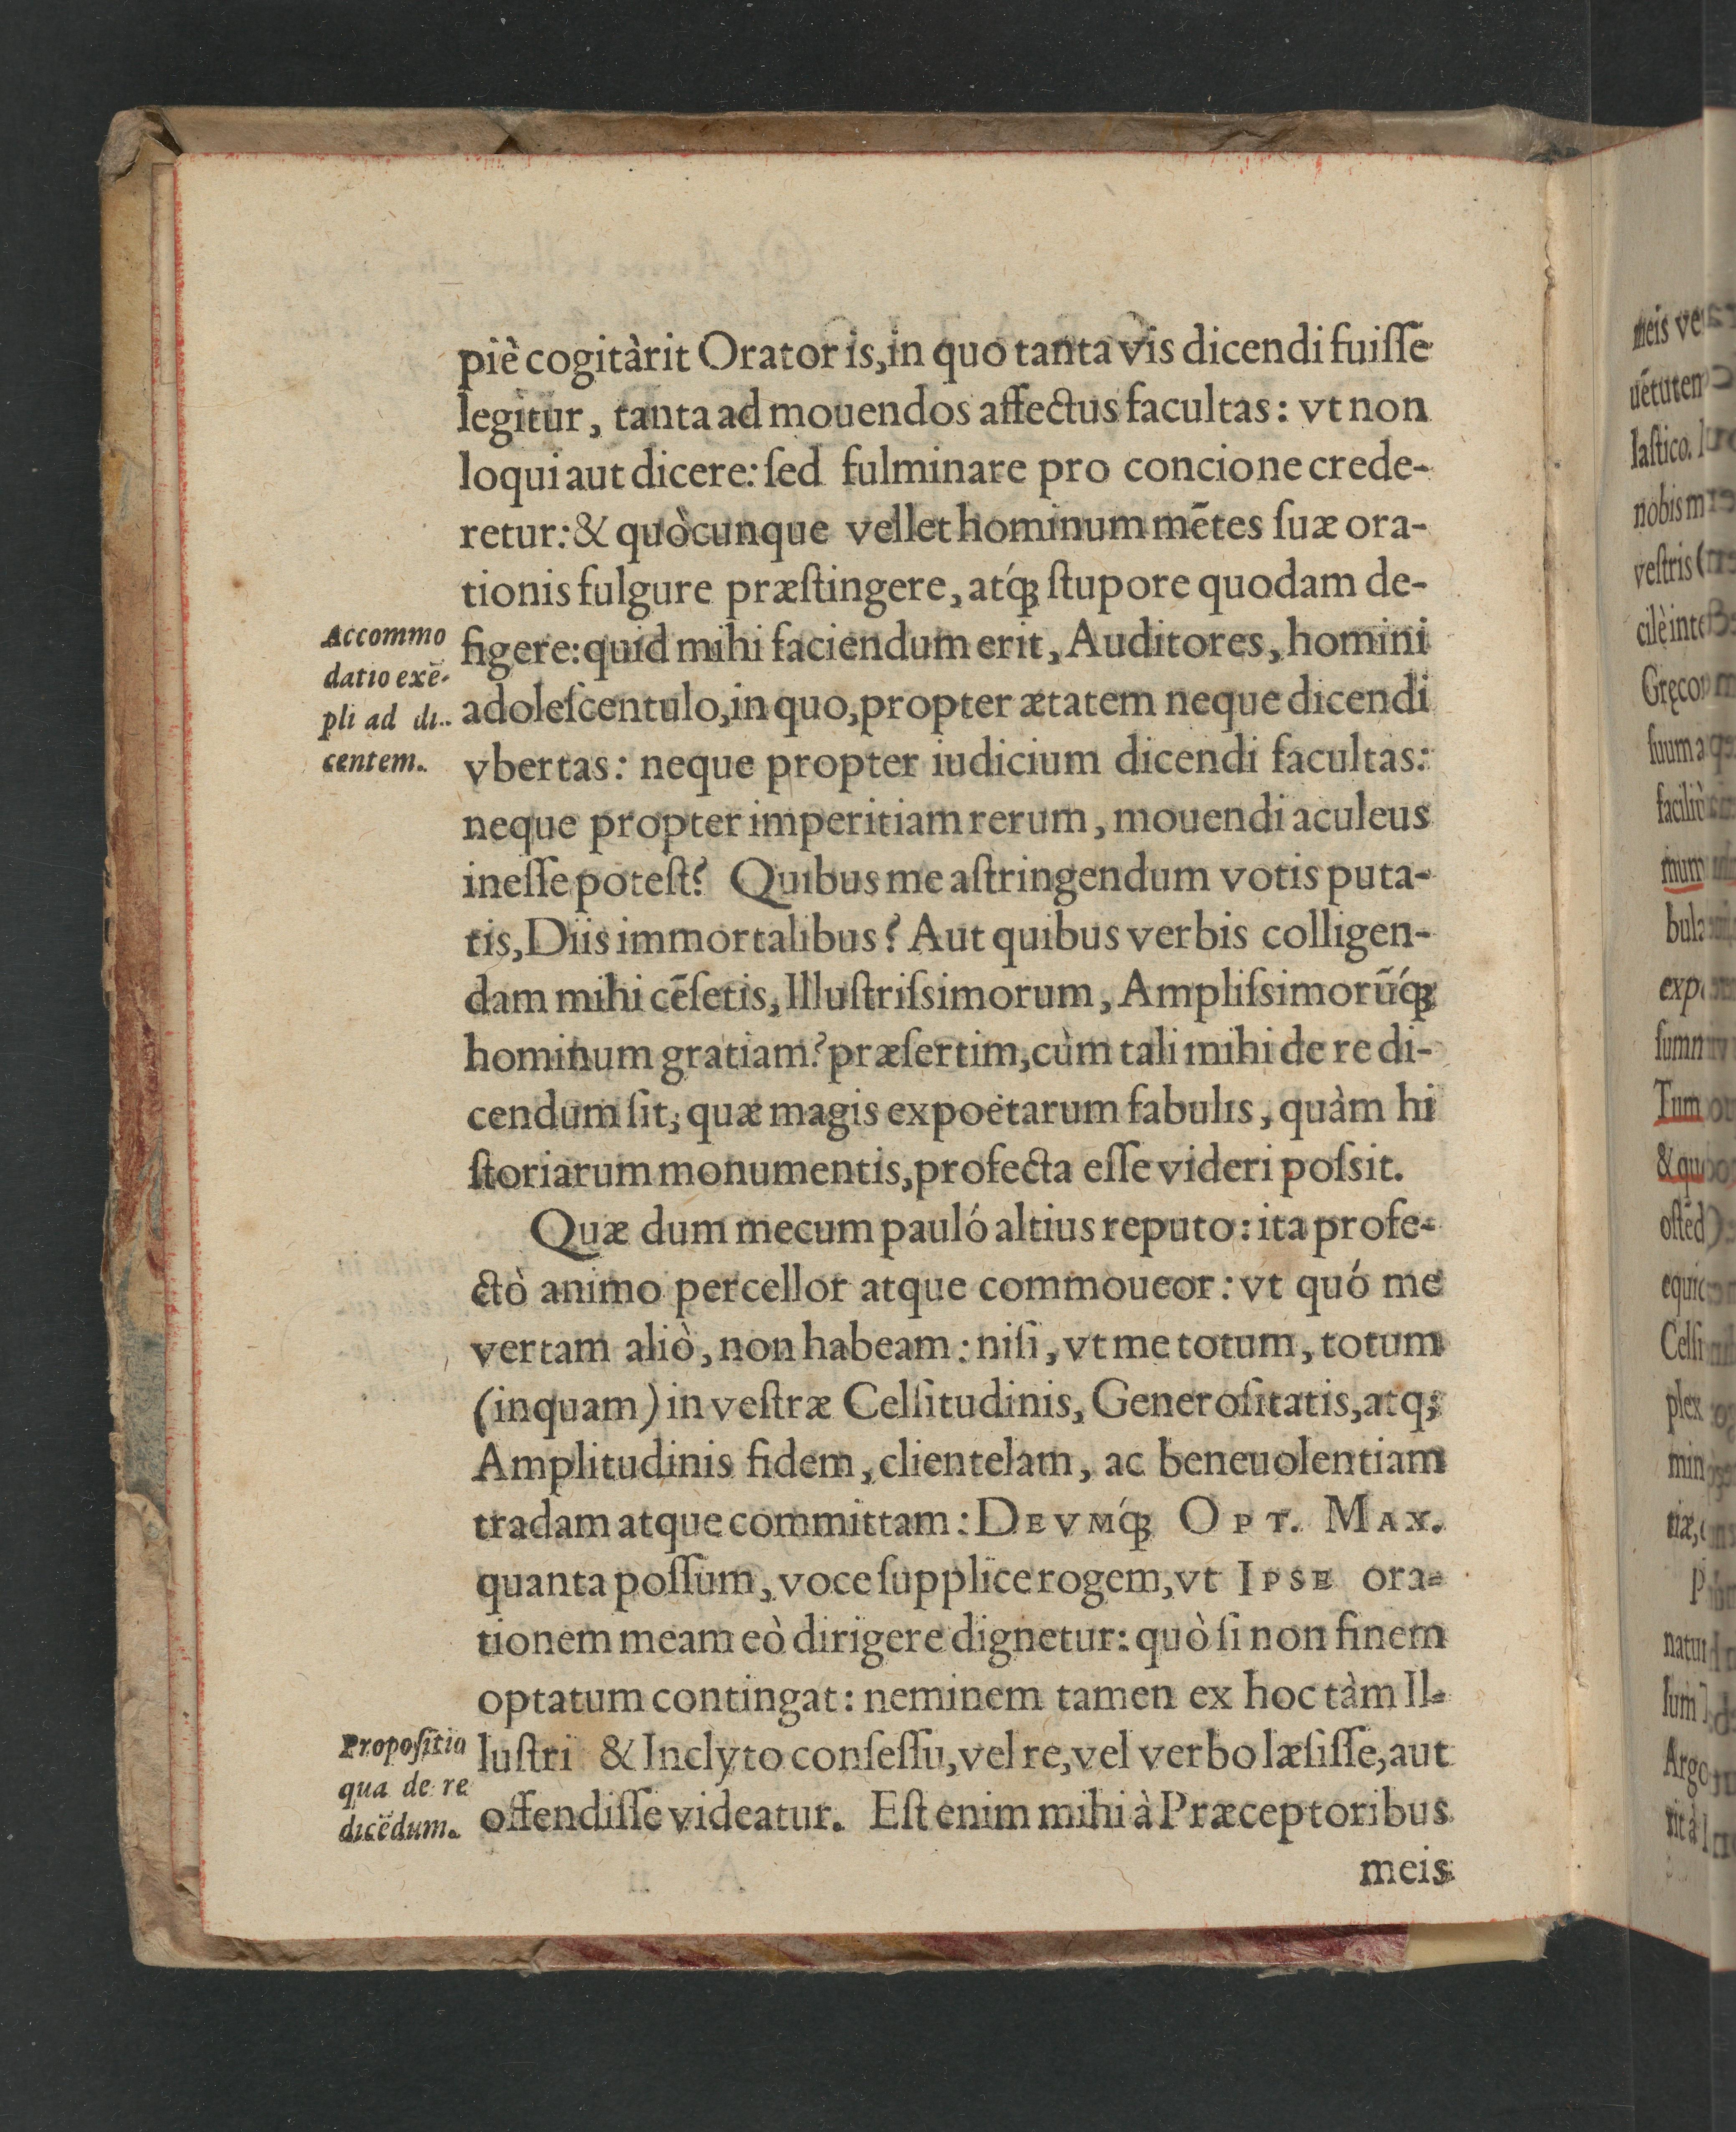 piè cogitàrit Orator is, in quo tanta vis dicendi fuiſſe
legitur, tanta ad mouendos affectus facultas: vt non
loqui aut dicere: ſed fulminare pro concione crede-
retur: & quòcunque vellet hominum mētes ſuæ ora-
tionis fulgure præſtingere, atq́ꝫ ſtupore quodam de-
figere: quid mihi faciendum erit, Auditores, homini
adoleſcentulo, in quo, propter ætatem neque dicendi
vbertas: neque propter iudicium dicendi facultas:
neque propter imperitiam rerum, mouendi aculeus
ineſſe poteſt? Quibus me aſtringendum votis puta-
tis, Diis immortalibus? Aut quibus verbis colligen-
dam mihi cēſetis, Illuſtriſsimorum, Ampliſsimorū́q́ꝫ
hominum gratiam? præſertim, cùm tali mihi de re di-
cendum ſit; quæ magis ex poëtarum fabulis, quàm hi
ſtoriarum monumentis, profecta eſſe videri poſsit.
Quæ dum mecum pauló altius reputo: ita profe-
ctò animo percellor atque commoueor: vt quó me
vertam aliò, non habeam: niſi, vt me totum, totum
(inquam) in veſtræ Celſitudinis, Generoſitatis, atq;
Amplitudinis fidem, clientelam, ac beneuolentiam
tradam atque committam: DEVMq́ꝫ OPT. MAX.
quanta poſſum, voce ſupplice rogem, vt IPSE ora-
tionem meam eò dirigere dignetur: quò ſi non finem
optatum contingat: neminem tamen ex hoc tàm Il-
luſtri & Inclyto conſeſſu, vel re, vel verbo læſiſſe, aut
offendiſſe videatur. Eſt enim mihi à Præceptoribus
meis
Accommo
datio exē-
pli ad di-
centem.
Propoſitio
qua de re
dicēdum.